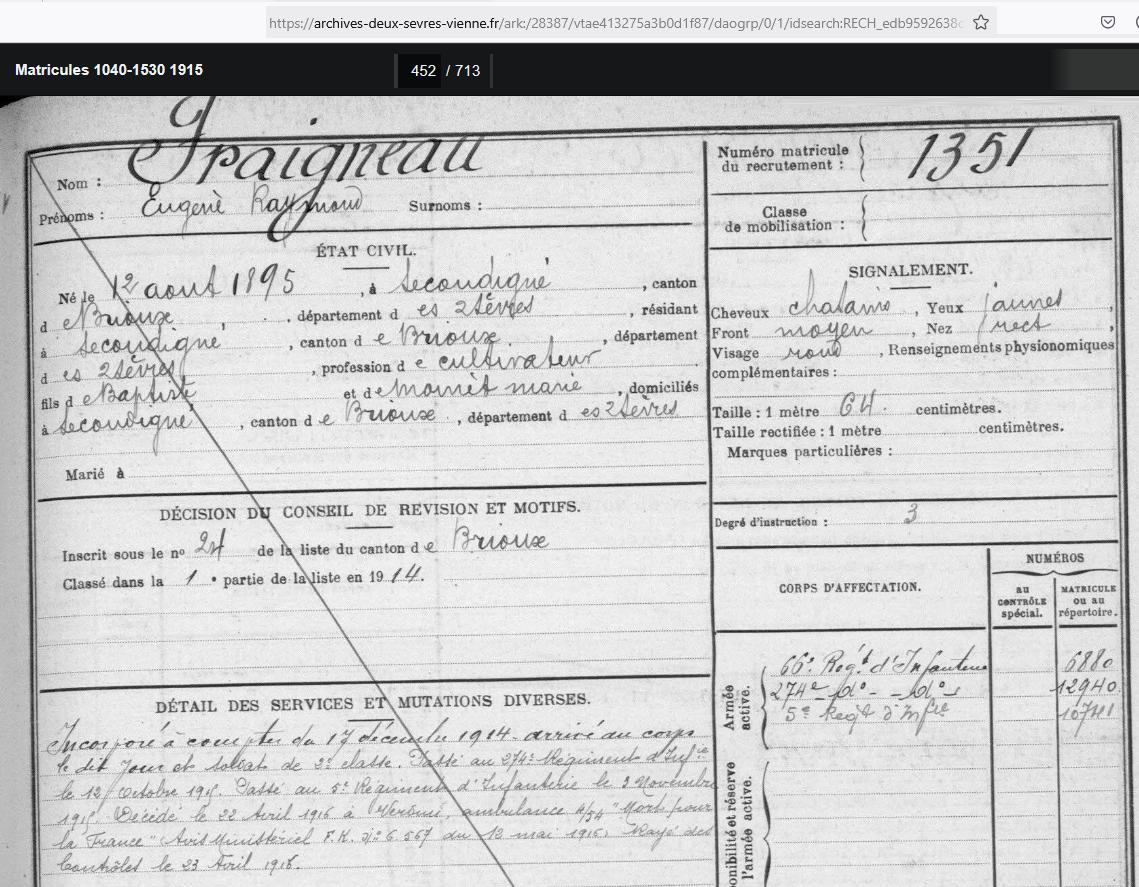 https://archives-deux-sevres-vienne.fr/ark:/28387/vtae413275a3b0d1f87/daogrp/0/1/idsearch:RECH_edb9592638c
Matricules 1040-1530 1915
452 / 713
Nom : Fraigneau
Prénoms : Eugène Raymond Surnoms :
Numéro matricule
du recrutement : 1351
Classe
de mobilisation :
ÉTAT CIVIL.
Né le 12 aout 1895, à Secondigné, canton
d e Brioux, département d es 2 Sèvres, résidant
à Secondigné, canton d e Brioux, département
d es 2 Sèvres, profession d e cultivateur
fils d e Baptiste et d e marie, domiciliés
à Secondigné, canton d e Brioux, département d es 2 Sèvres
Marié à
SIGNALEMENT.
Cheveux chatains, Yeux jaunes
Front moyen, Nez rect,
Visage rond, Renseignements physionomiques
complémentaires :
Taille : 1 mètre 64. centimètres.
Taille rectifiée : 1 mètre centimètres.
Marques particulières :
Degré d'instruction : 3
DÉCISION DU CONSEIL DE REVISION ET MOTIFS.
Inscrit sous le nº 24 de la liste du canton d e Brioux
Classé dans la 1 • partie de la liste en 1914.
CORPS D'AFFECTATION.
NUMÉROS
AU CONTRÔLE spécial.
MATRICULE OU AU répertoire.
Armée active.
66e Regt d'Infanterie 6880
274e -do- -do- 12940
5e Regt d'Infie 10741
ponibilité et réserve
l'armée active.
DÉTAIL DES SERVICES ET MUTATIONS DIVERSES.
Incorporé à compter du 17 décembre 1914. arrivé au corps
le dit jour et soldat de 2e classe. Passé au 274e Régiment d'Infie
le 12 Octobre 1915. Passé au 5e Régiment d'Infanterie le 3 Novembre
1915. Décédé le 22 Avril 1916 à ambulance 4/54 "Mort pour
la France" Avis Ministériel F.K. 567 du 12 mai 1916. Rayé des
Contrôles le 23 Avril 1916.